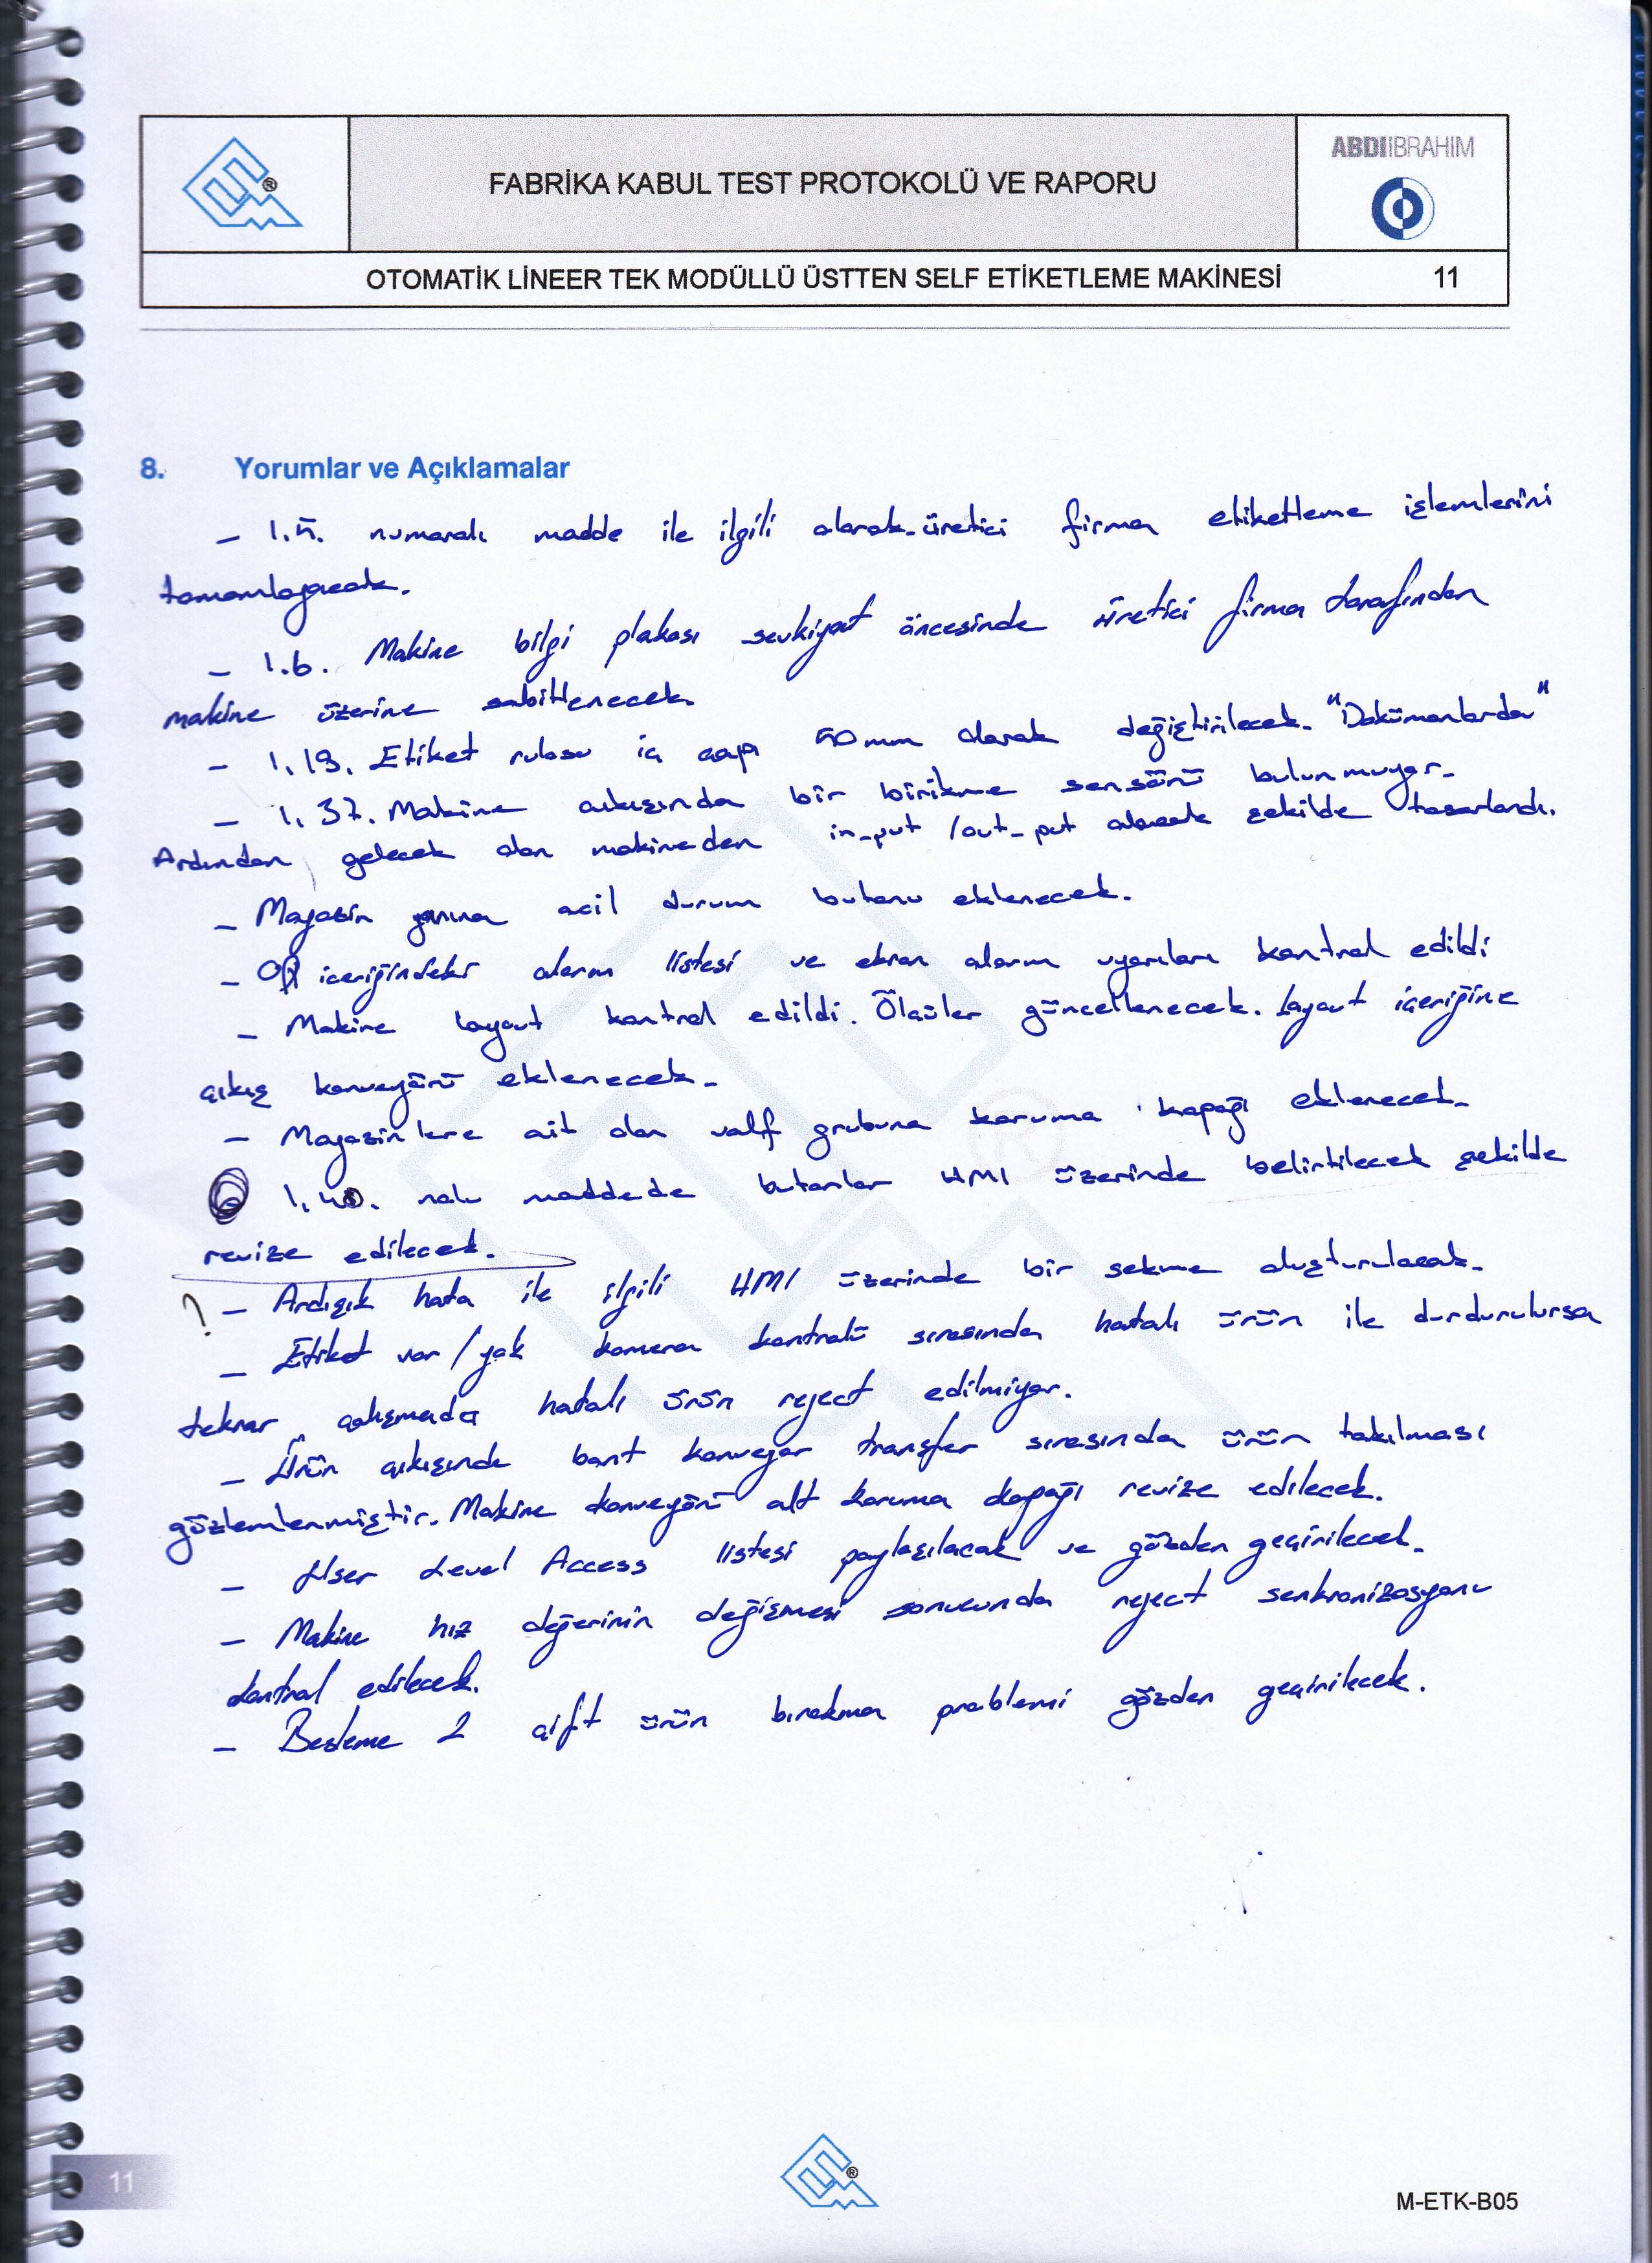 ABDİİBRAHİM
FABRİKA KABUL TEST PROTOKOLÜ VE RAPORU
OTOMATİK LİNEER TEK MODÜLLÜ ÜSTTEN SELF ETİKETLEME MAKİNESİ 11
8. Yorumlar ve Açıklamalar
- 1.5. numaralı madde ile ilgili olarak üretici firma etiketleme işlemlerini
tamamlayacak.
- 1.6. Makine bilgi plakası sevkiyat öncesinde üretici firma tarafından
makine üzerine sabitlenecek.
- 1.19. Etiket rulosu iç çapı 50 mm olarak değiştirilecek. "Dokümanlarda"
- 1.37. Makine çıkışında bir birikme sensörü bulunmuyor.
Ardından gelecek olan makineden in-put / out-put alacak şekilde tasarlandı.
- Magazin yanına acil durum butonu eklenecek.
- OQ içeriğindeki alarm listesi ve ekran alarm uyarıları kontrol edildi
- Makine layout kontrol edildi. Ölçüler güncellenecek. Layout içeriğine
çıkış konveyörü eklenecek.
- Magazinlere ait olan valf grubuna koruma kapağı eklenecek.
1.40. nolu maddede butonlar HMI üzerinde belirtilecek şekilde
revize edilecek.
? - Ardışık hata ile ilgili HMI üzerinde bir sekme oluşturulacak.
- Etiket var / yok kamera kontrolü sırasında hatalı ürün ile durdurulursa
tekrar çalışmada hatalı ürün reject edilmiyor.
- Ürün çıkışında bant konveyor transfer sırasında ürün takılması
gözlemlenmiştir. Makine konveyörü alt koruma kapağı revize edilecek.
- User Level Access listesi paylaşılacak ve gözden geçirilecek.
- Makine hız değerinin değişmesi sonucunda reject senkronizasyonu
kontrol edilecek.
- Besleme 2 çift ürün bırakma problemi gözden geçirilecek.
11
M-ETK-B05